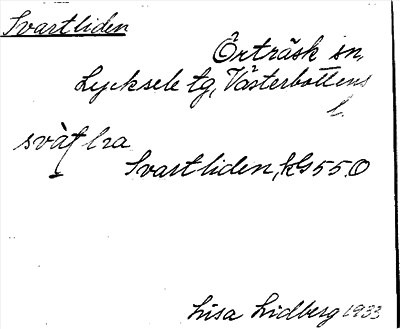 Svartliden
Örträsk sn,
Lycksele tg, Västerbottens
l.
Svartliden, kbs 55.0
Lisa Lidberg 1933